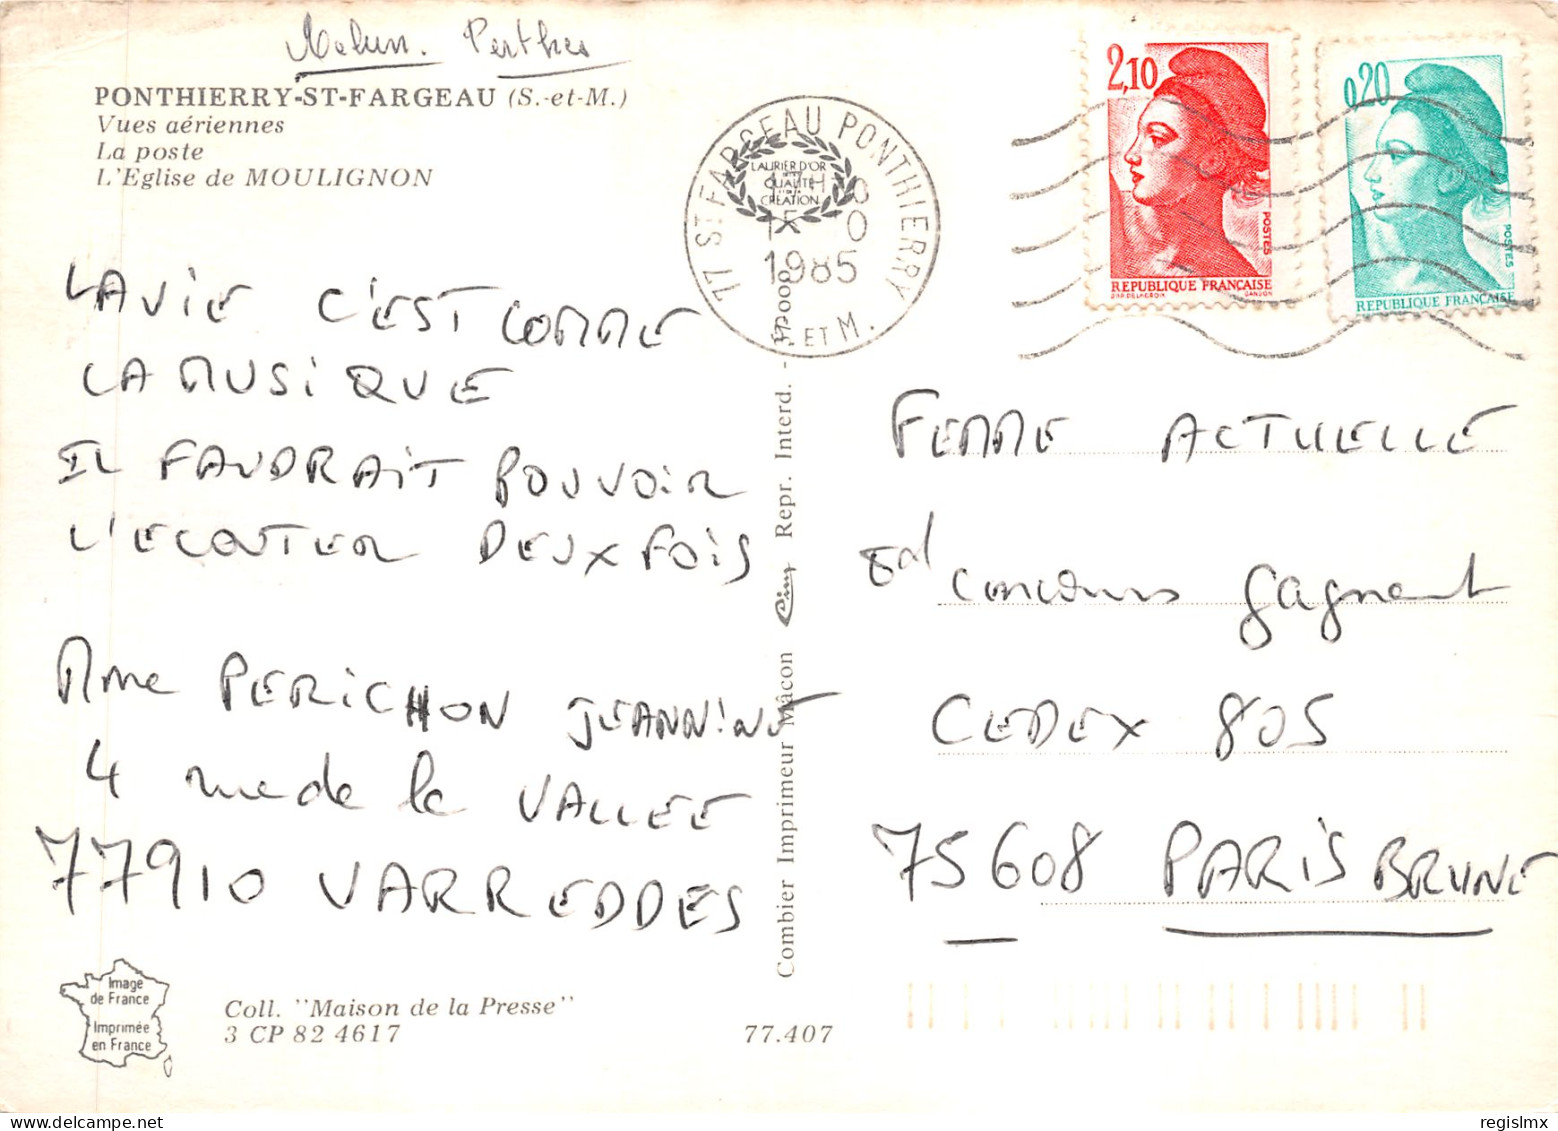 Melun. Perthes
PONTHIERRY-ST-FARGEAU (S.-et-M.)
Vues aériennes
La poste
L'Eglise de MOULIGNON
77 ST FARGEAU PONTHIERRY
S. ET M.
1985
LAURIER D'OR
QUALITÉ
CRÉATION
2,10
POSTES
REPUBLIQUE FRANÇAISE
D'AP. DELACROIX GANDON
0,20
POSTES
REPUBLIQUE FRANÇAISE
LA VIE C'EST COMME
LA MUSIQUE
IL FAUDRAIT POUVOIR
L'ECOUTER DEUX FOIS
Mme PERICHON JEANNINE
4 rue de la VALLEE
77910 VARREDDES
Combier Imprimeur Mâcon Cim Repr. Interd. -
FEMME ACTUELLE
concours gagnant
CEDEX 805
75608 PARIS BRUNE
Image
de France
Imprimée
en France
Coll. "Maison de la Presse"
3 CP 82 4617
77.407
regislmx